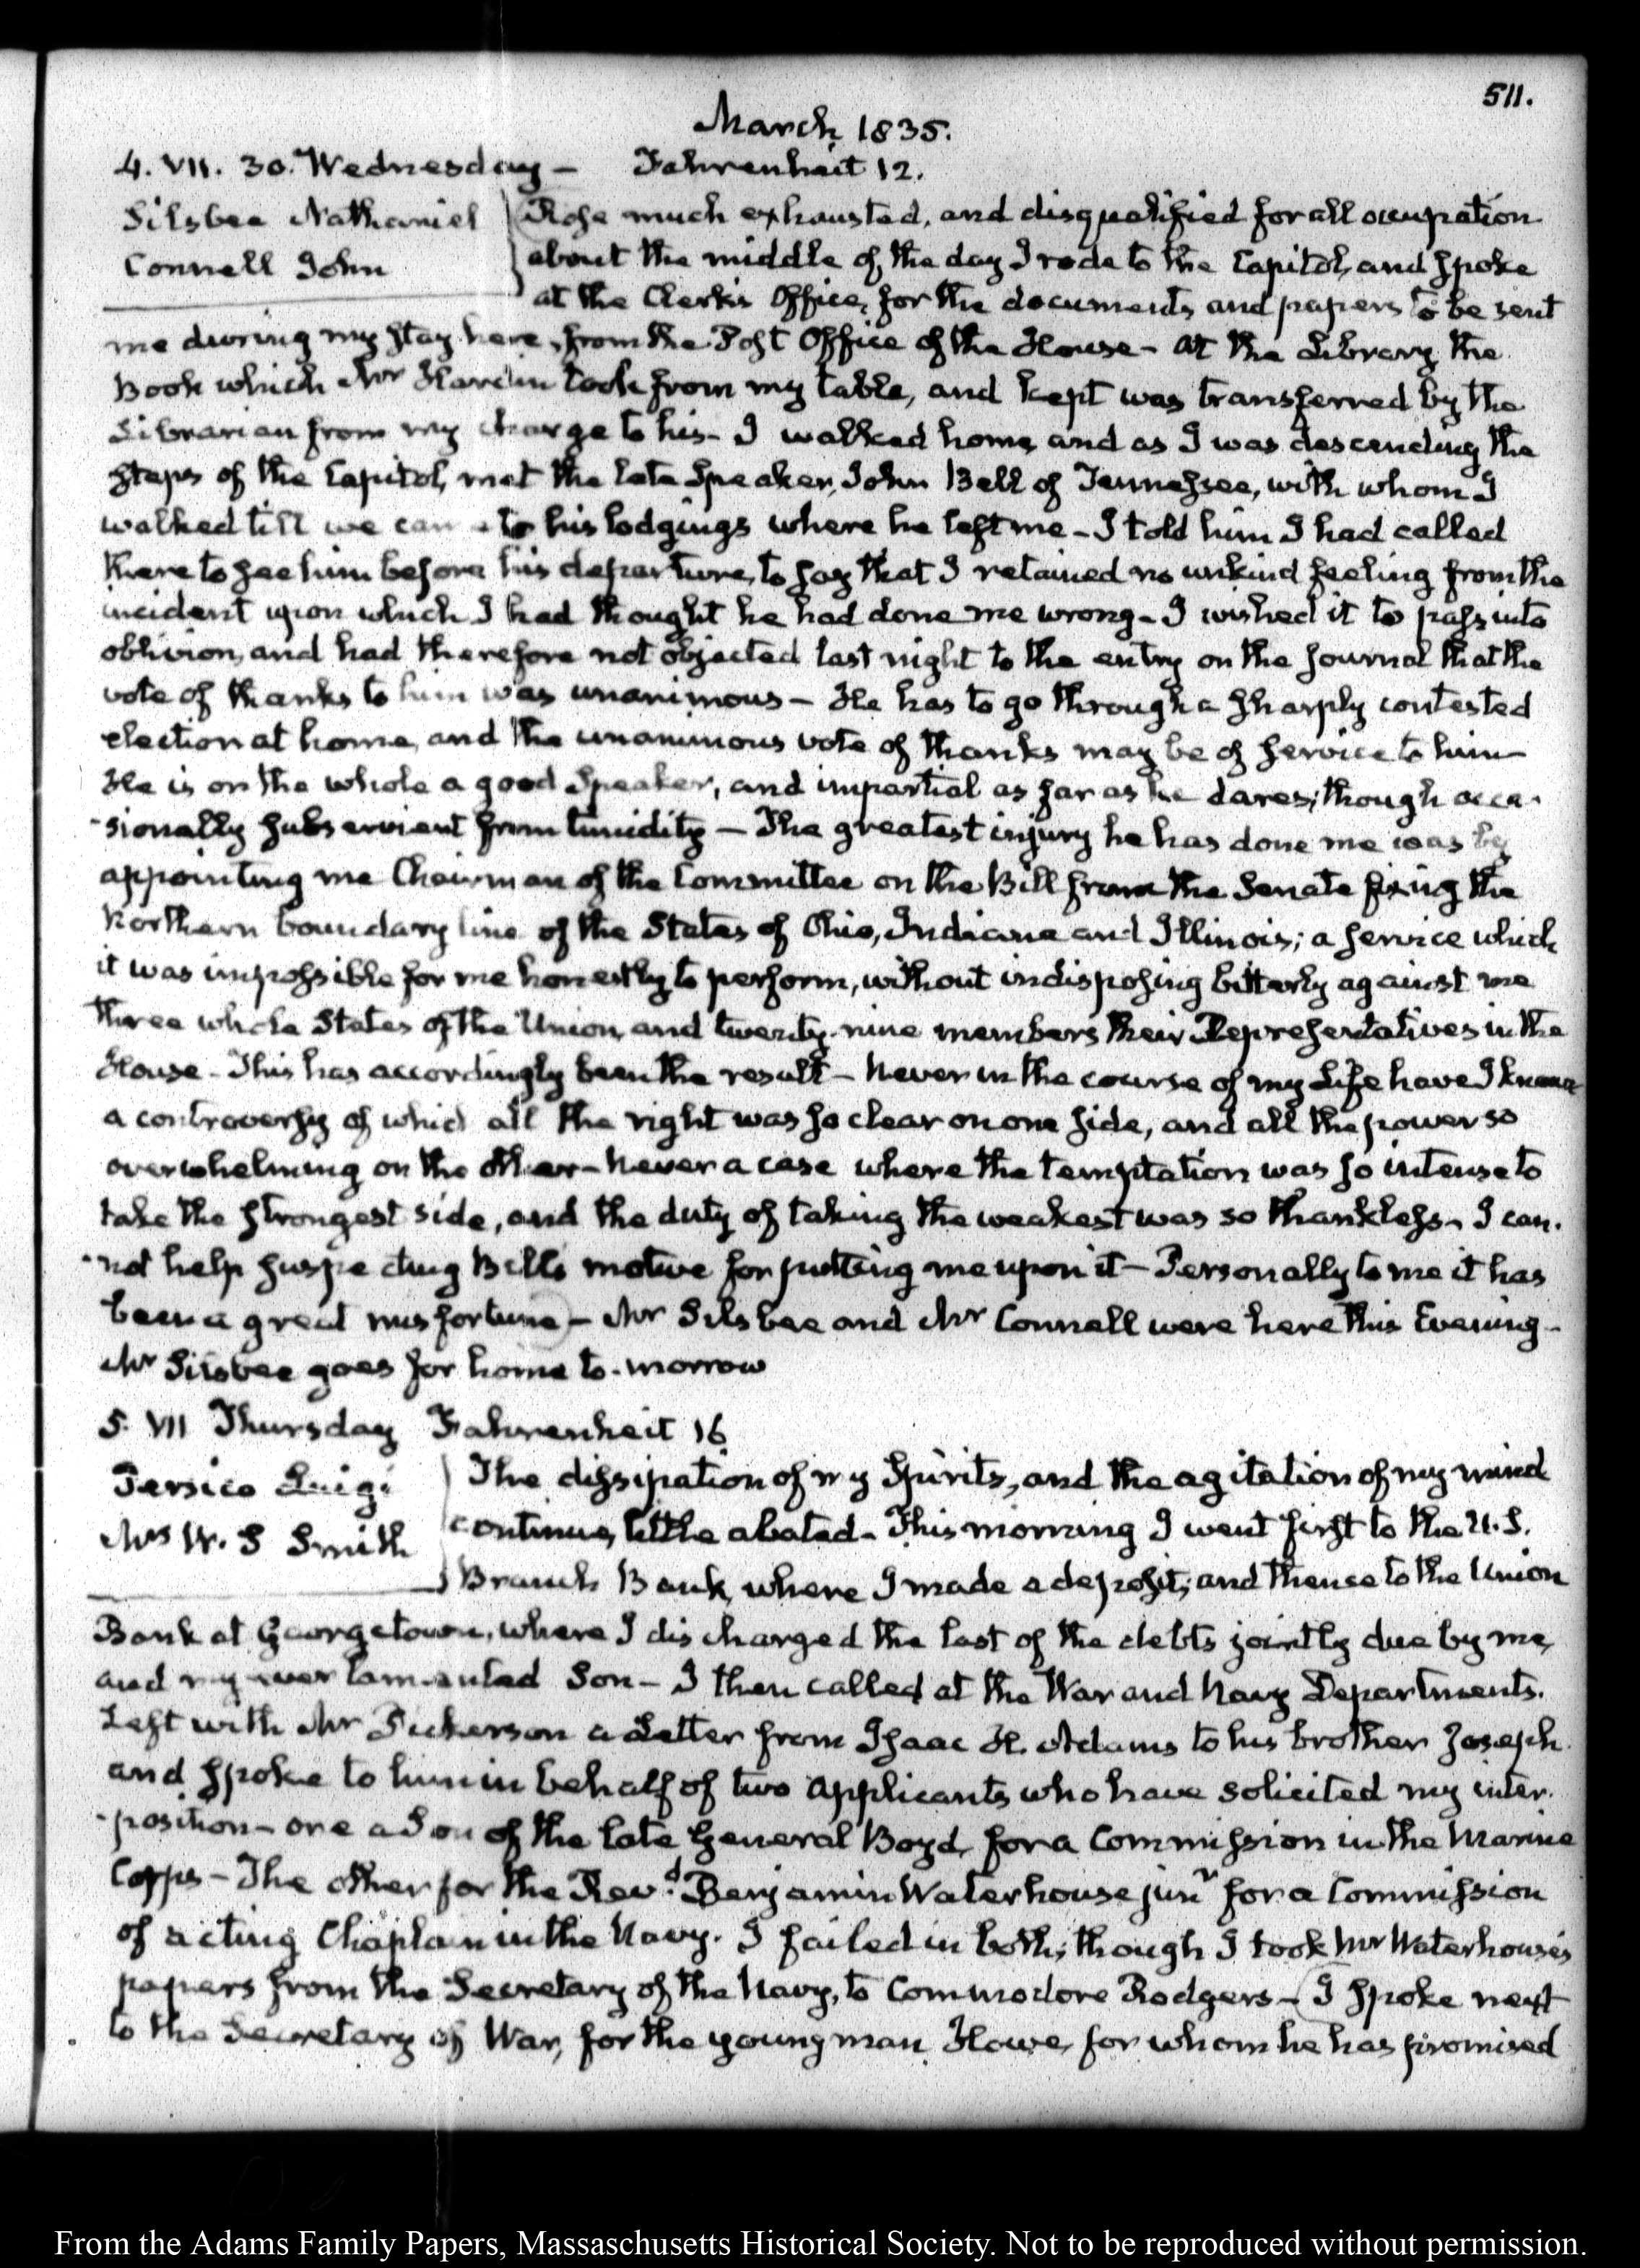 511.
March 1835.
4. VII. 30. Wednesday — Fahrenheit 12.
Silsbee Nathaniel
Connell John
Rose much exhausted, and disqualified for all occupation
about the middle of the day I rode to the Capitol, and spoke
at the Clerk's Office, for the documents and papers to be sent
me during my stay here, from the Post Office of the House - at the Library the
Book which Mr Hardin took from my table, and kept was transferred by the
Librarian from my charge to his - I walked home, and as I was descending the
steps of the Capitol, met the late Speaker, John Bell of Tennessee, with whom I
walked till we came to his lodgings where he left me - I told him I had called
there to see him before his departure, to say that I retained no unkind feeling from the
incident upon which I had thought he had done me wrong - I wished it to pass into
oblivion, and had therefore not objected last night to the entry on the journal that the
vote of thanks to him was unanimous - He has to go through a sharply contested
election at home, and the unanimous vote of thanks may be of service to him -
He is on the whole a good Speaker, and impartial as far as he dares; though occa-
-sionally subservient from timidity - The greatest injury he has done me was by
appointing me Chairman of the Committee on the Bill from the Senate fixing the
Northern boundary line of the States of Ohio, Indiana and Illinois; a service which
it was impossible for me honestly to perform, without indisposing bitterly against me
three whole States of the Union, and twenty-nine members their Representatives in the
House - This has accordingly been the result - Never in the course of my Life have I known
a controversy of which all the right was so clear on one side, and all the power so
overwhelming on the other - Never a case where the temptation was so intense to
take the strongest side, and the duty of taking the weakest was so thankless - I can-
-not help suspecting Bell's motive for putting me upon it - Personally to me it has
been a great misfortune - Mr Silsbee and Mr Connell were here this Evening -
Mr Silsbee goes for home to-morrow
5. VII Thursday Fahrenheit 16
Persico Luigi
Mrs W. S Smith
The dissipation of my Spirits, and the agitation of my mind
continue, little abated - This morning I went first to the U.S.
Branch Bank, where I made a deposit; and thence to the Union
Bank at Georgetown, where I discharged the last of the debts jointly due by me,
and my ever lamented Son - I then called at the War and Navy Departments.
Left with Mr Dickerson a Letter from Isaac H. Adams to his brother Joseph
and spoke to him in behalf of two applicants who have solicited my inter-
-position - one a Son of the late General Boyd, for a Commission in the Marine
Corps - The other for the Rev.d Benjamin Waterhouse junr for a Commission
of acting Chaplain in the Navy. I failed in both; though I took Mr Waterhouse's
papers from the Secretary of the Navy, to Commodore Rodgers - I spoke next
to the Secretary of War, for the young man Howe, for whom he has promised
From the Adams Family Papers, Massachusetts Historical Society. Not to be reproduced without permission.